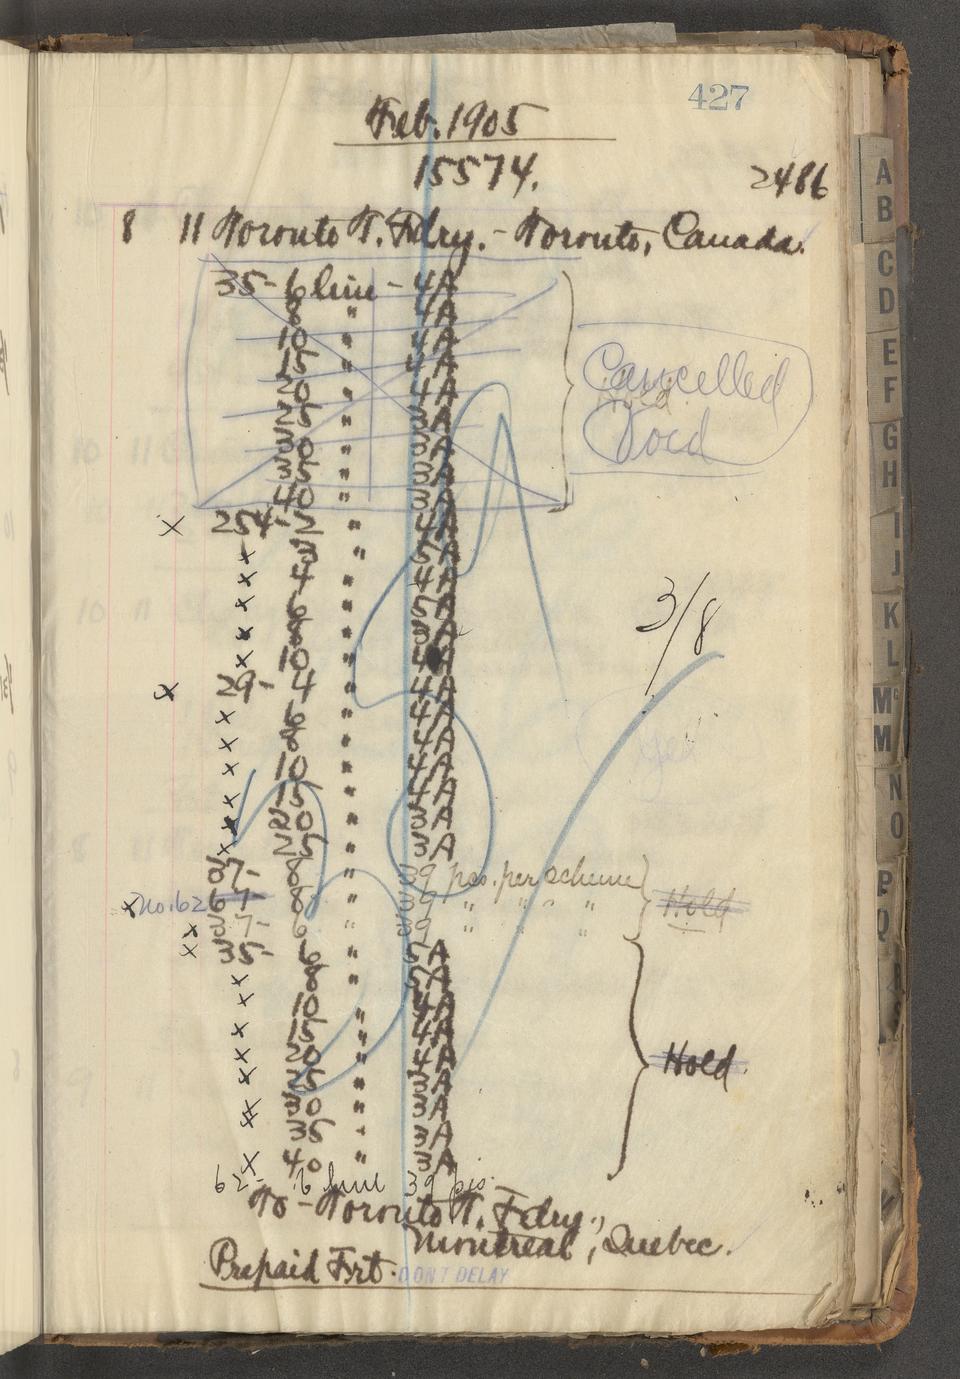 427
Feb. 1905
15574.
2486
8 11 Toronto T. Fdry. - Toronto, Canada.
35- 6 line - 4A
8 " 4A
10 " 4A
15 " 4A
20 " 4A
25 " 3A
30 " 3A
35 " 3A
40 " 3A
Cancelled
Void
x 254- 2 " 4A
x 3 " 5A
x 4 " 4A
x 6 " 5A
x 8 " 3A
x 10 " 4A
3/8
x 29- 4 " 4A
x 6 " 4A
x 8 " 4A
x 10 " 4A
x 15 " 4A
x 20 " 3A
x 25 " 3A
27- 8 " 39 pcs. per scheme
x no. 62 67- 8 " 39 " " " "
Hold
x 37- 6 " 39 " " "
x 35- 6 " 5A
x 8 " 5A
x 10 " 4A
x 15 " 4A
x 20 " 4A
x 25 " 3A
Hold.
x 30 " 3A
x 35 " 3A
x 40 " 3A
62- 6 line 39 pcs.
To - Toronto T. Fdry.,
Montreal, Quebec.
Prepaid Frt.
DON'T DELAY
A
B
C
D
E
F
G
H
I
J
K
L
Mc
M
N
O
P
Q
R
S